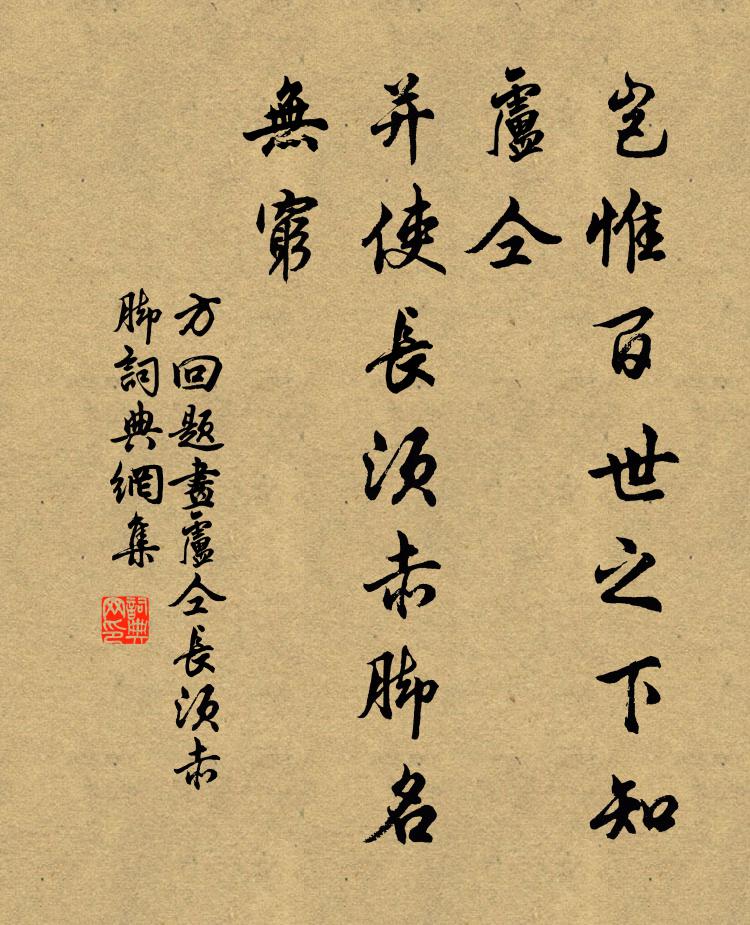 岂惟百世之下知
盧仝
并使長須赤脚名
無窮
方回題畫盧仝長須赤
脚詞典網集
詞典
网印